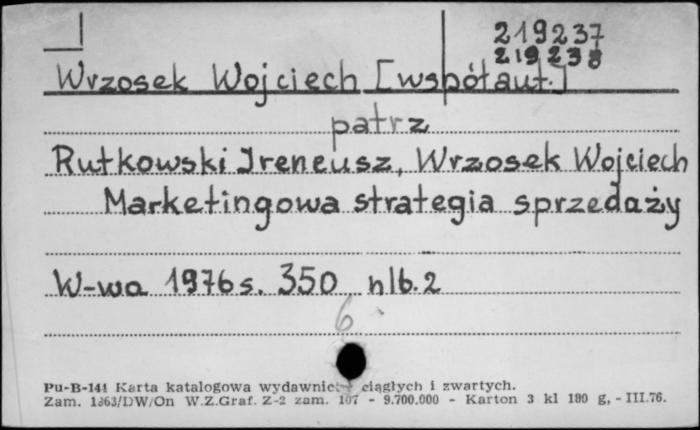 219237
219238
Wrzosek Wojciech [współaut.]
patrz
Rutkowski Ireneusz, Wrzosek Wojciech
Marketingowa strategia sprzedaży
W-wa 1976 s. 350 nlb. 2
6
Pu-B-141 Karta katalogowa wydawnict ciągłych i zwartych.
Zam. 1363/DW/On W.Z.Graf. Z-2 zam. 107 - 9.700.000 - Karton 3 kl 180 g, - III.76.